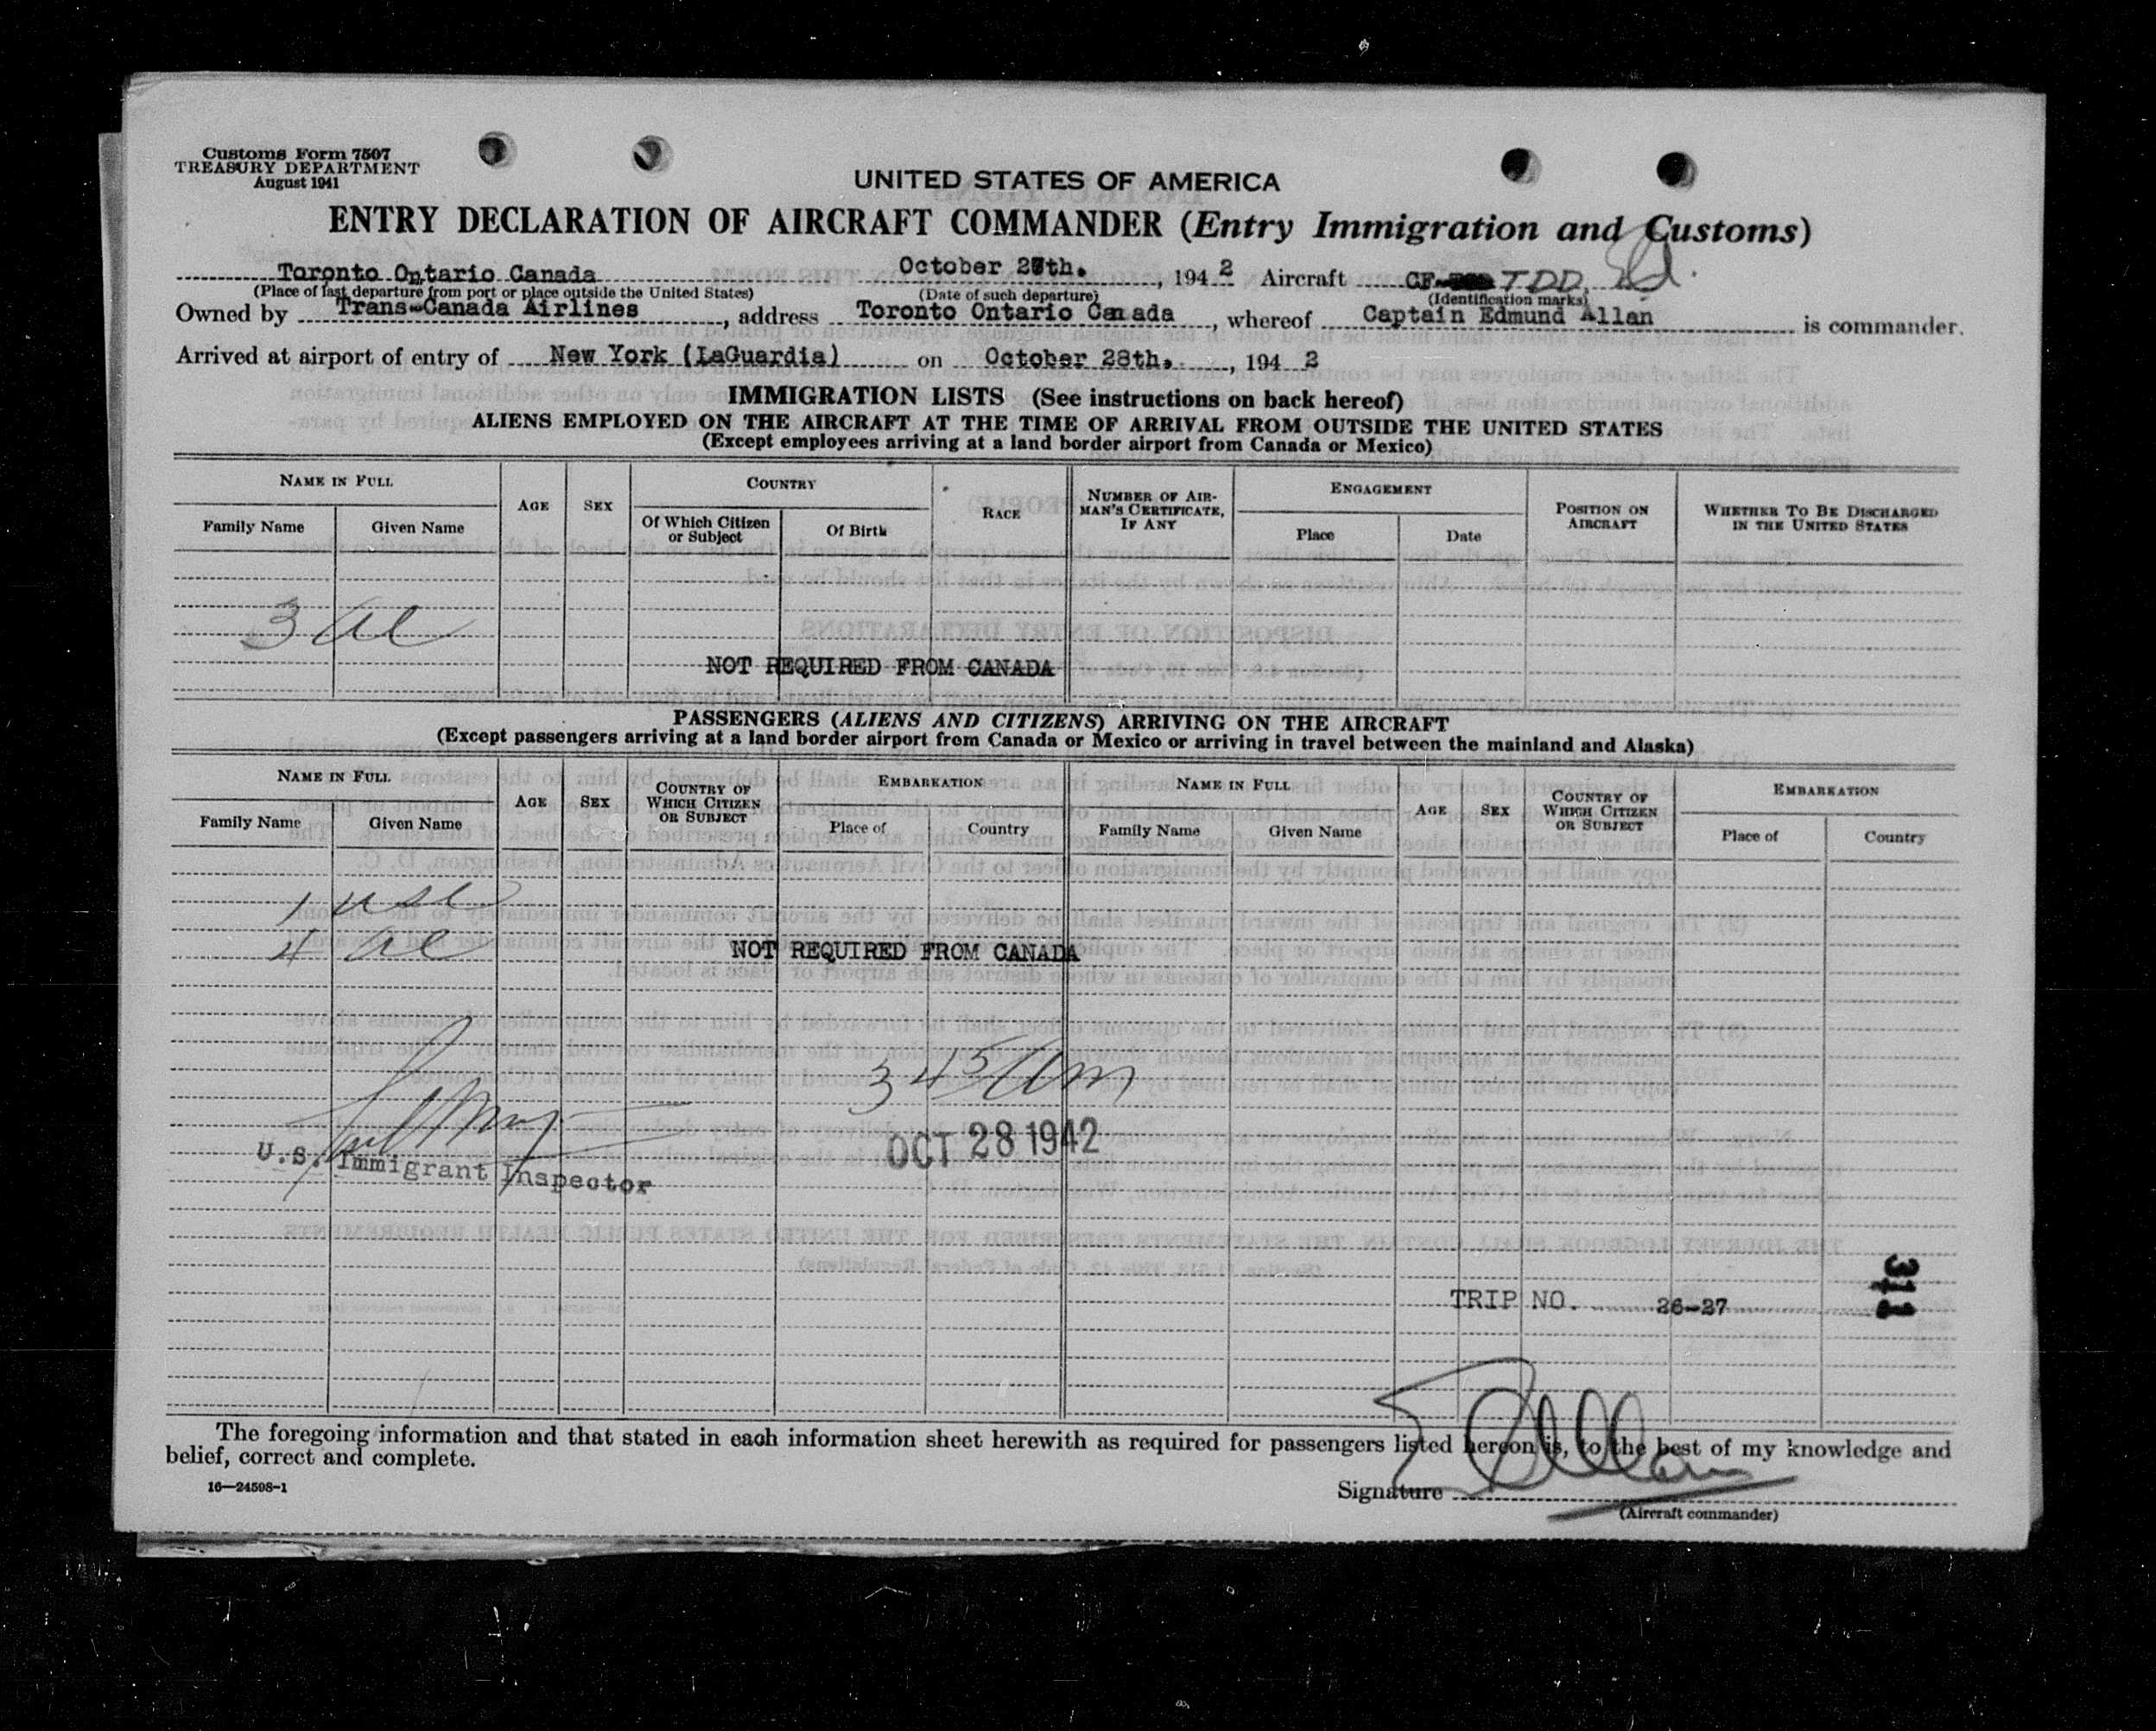 Customs Form 7507
TREASURY DEPARTMENT
August 1941
UNITED STATES OF AMERICA
ENTRY DECLARATION OF AIRCRAFT COMMANDER (Entry Immigration and Customs)
Toronto Ontario Canada October 27th., 1942 Aircraft CF- TDD
(Place of last departure from port or place outside the United States) (Date of such departure) (Identification marks)
Owned by Trans-Canada Airlines, address Toronto Ontario Canada, whereof Captain Edmund Allan is commander.
Arrived at airport of entry of New York (LaGuardia) on October 28th., 1942
IMMIGRATION LISTS (See instructions on back hereof)
ALIENS EMPLOYED ON THE AIRCRAFT AT THE TIME OF ARRIVAL FROM OUTSIDE THE UNITED STATES
(Except employees arriving at a land border airport from Canada or Mexico)
NAME IN FULL AGE SEX COUNTRY RACE NUMBER OF AIRMAN'S CERTIFICATE, IF ANY ENGAGEMENT POSITION ON AIRCRAFT WHETHER TO BE DISCHARGED IN THE UNITED STATES
Family Name Given Name Of Which Citizen or Subject Of Birth Place Date
3 al
NOT REQUIRED FROM CANADA
PASSENGERS (ALIENS AND CITIZENS) ARRIVING ON THE AIRCRAFT
(Except passengers arriving at a land border airport from Canada or Mexico or arriving in travel between the mainland and Alaska)
NAME IN FULL AGE SEX COUNTRY OF WHICH CITIZEN OR SUBJECT EMBARKATION NAME IN FULL AGE SEX COUNTRY OF WHICH CITIZEN OR SUBJECT EMBARKATION
Family Name Given Name Place of Country Family Name Given Name Place of Country
1 usc
4 al
NOT REQUIRED FROM CANADA
345 am
OCT 28 1942
U.S. Immigrant Inspector
TRIP NO. 26-27
311
The foregoing information and that stated in each information sheet herewith as required for passengers listed hereon is, to the best of my knowledge and
belief, correct and complete.
16—24598-1
Signature E Allan
(Aircraft commander)